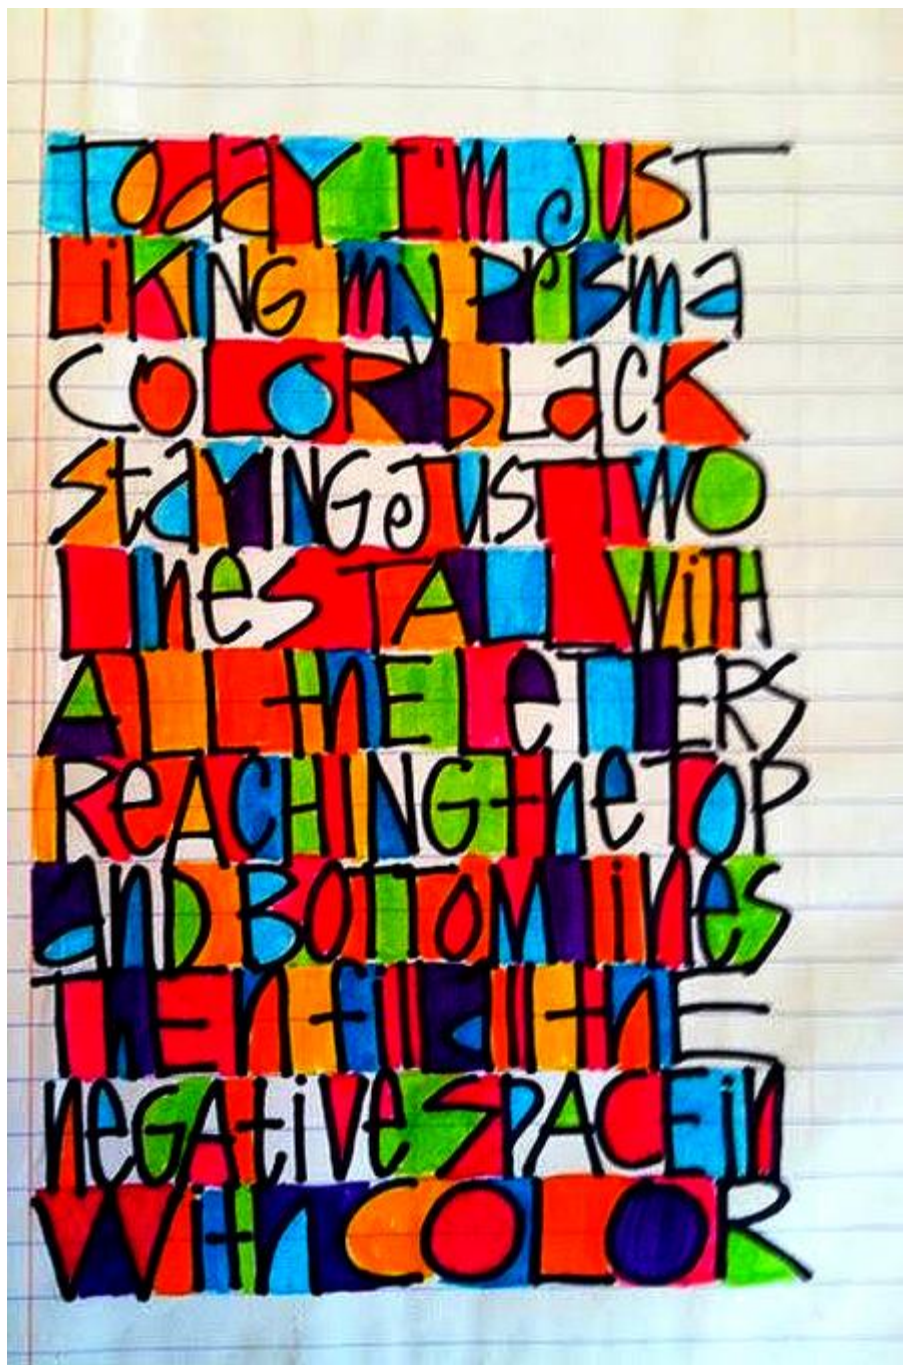 Today I'm just
LiKING my prisma
COLOR bLack
staYING & JUST TWO
LinES TALL WiTH
ALL thE LeTTERS
REACHING the TOP
and BOTTOM lines
ThEn fill all thE
neGAtive SPACE in
With COLOR